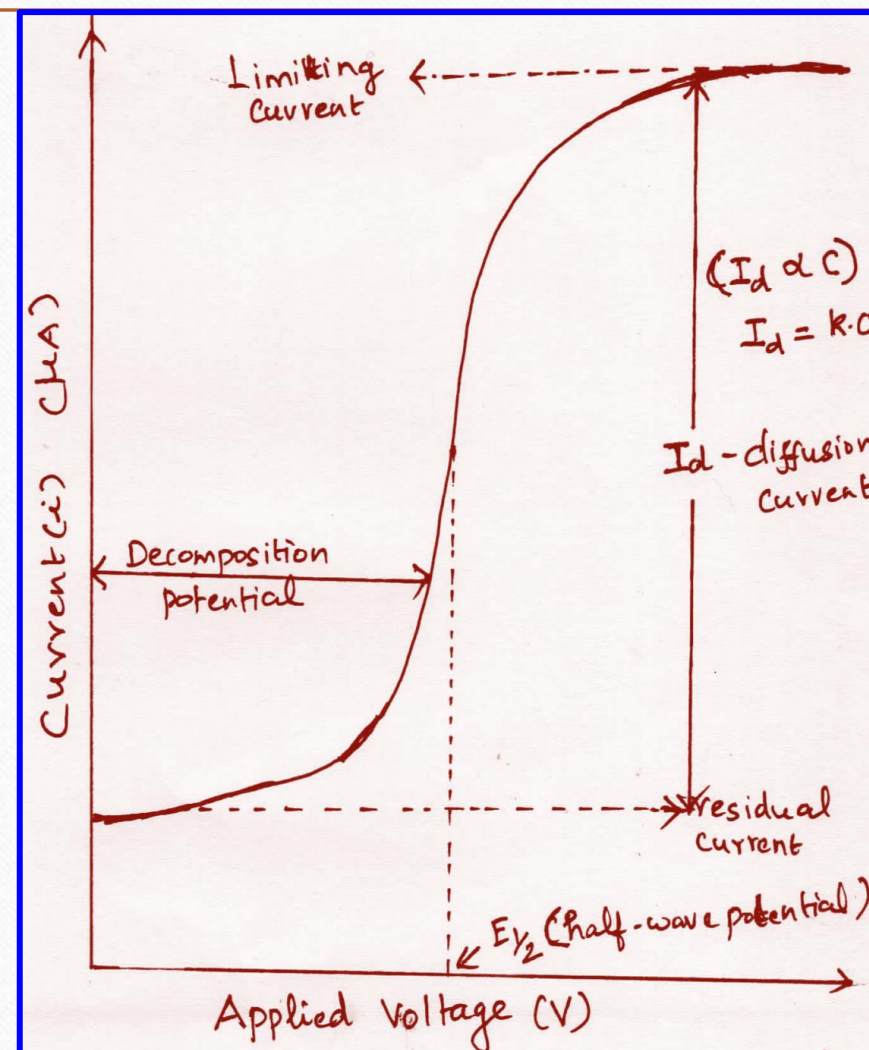 Limitting
Current
(I_d α C)
I_d = k.C
Id - diffusion
Current
Current (i) (μA)
Decomposition
potential
residual
current
E½ (half-wave potential)
Applied Voltage (V)